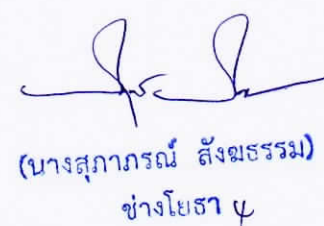 (นางสุภาภรณ์ สังฆธรรม)
ช่างโยธา